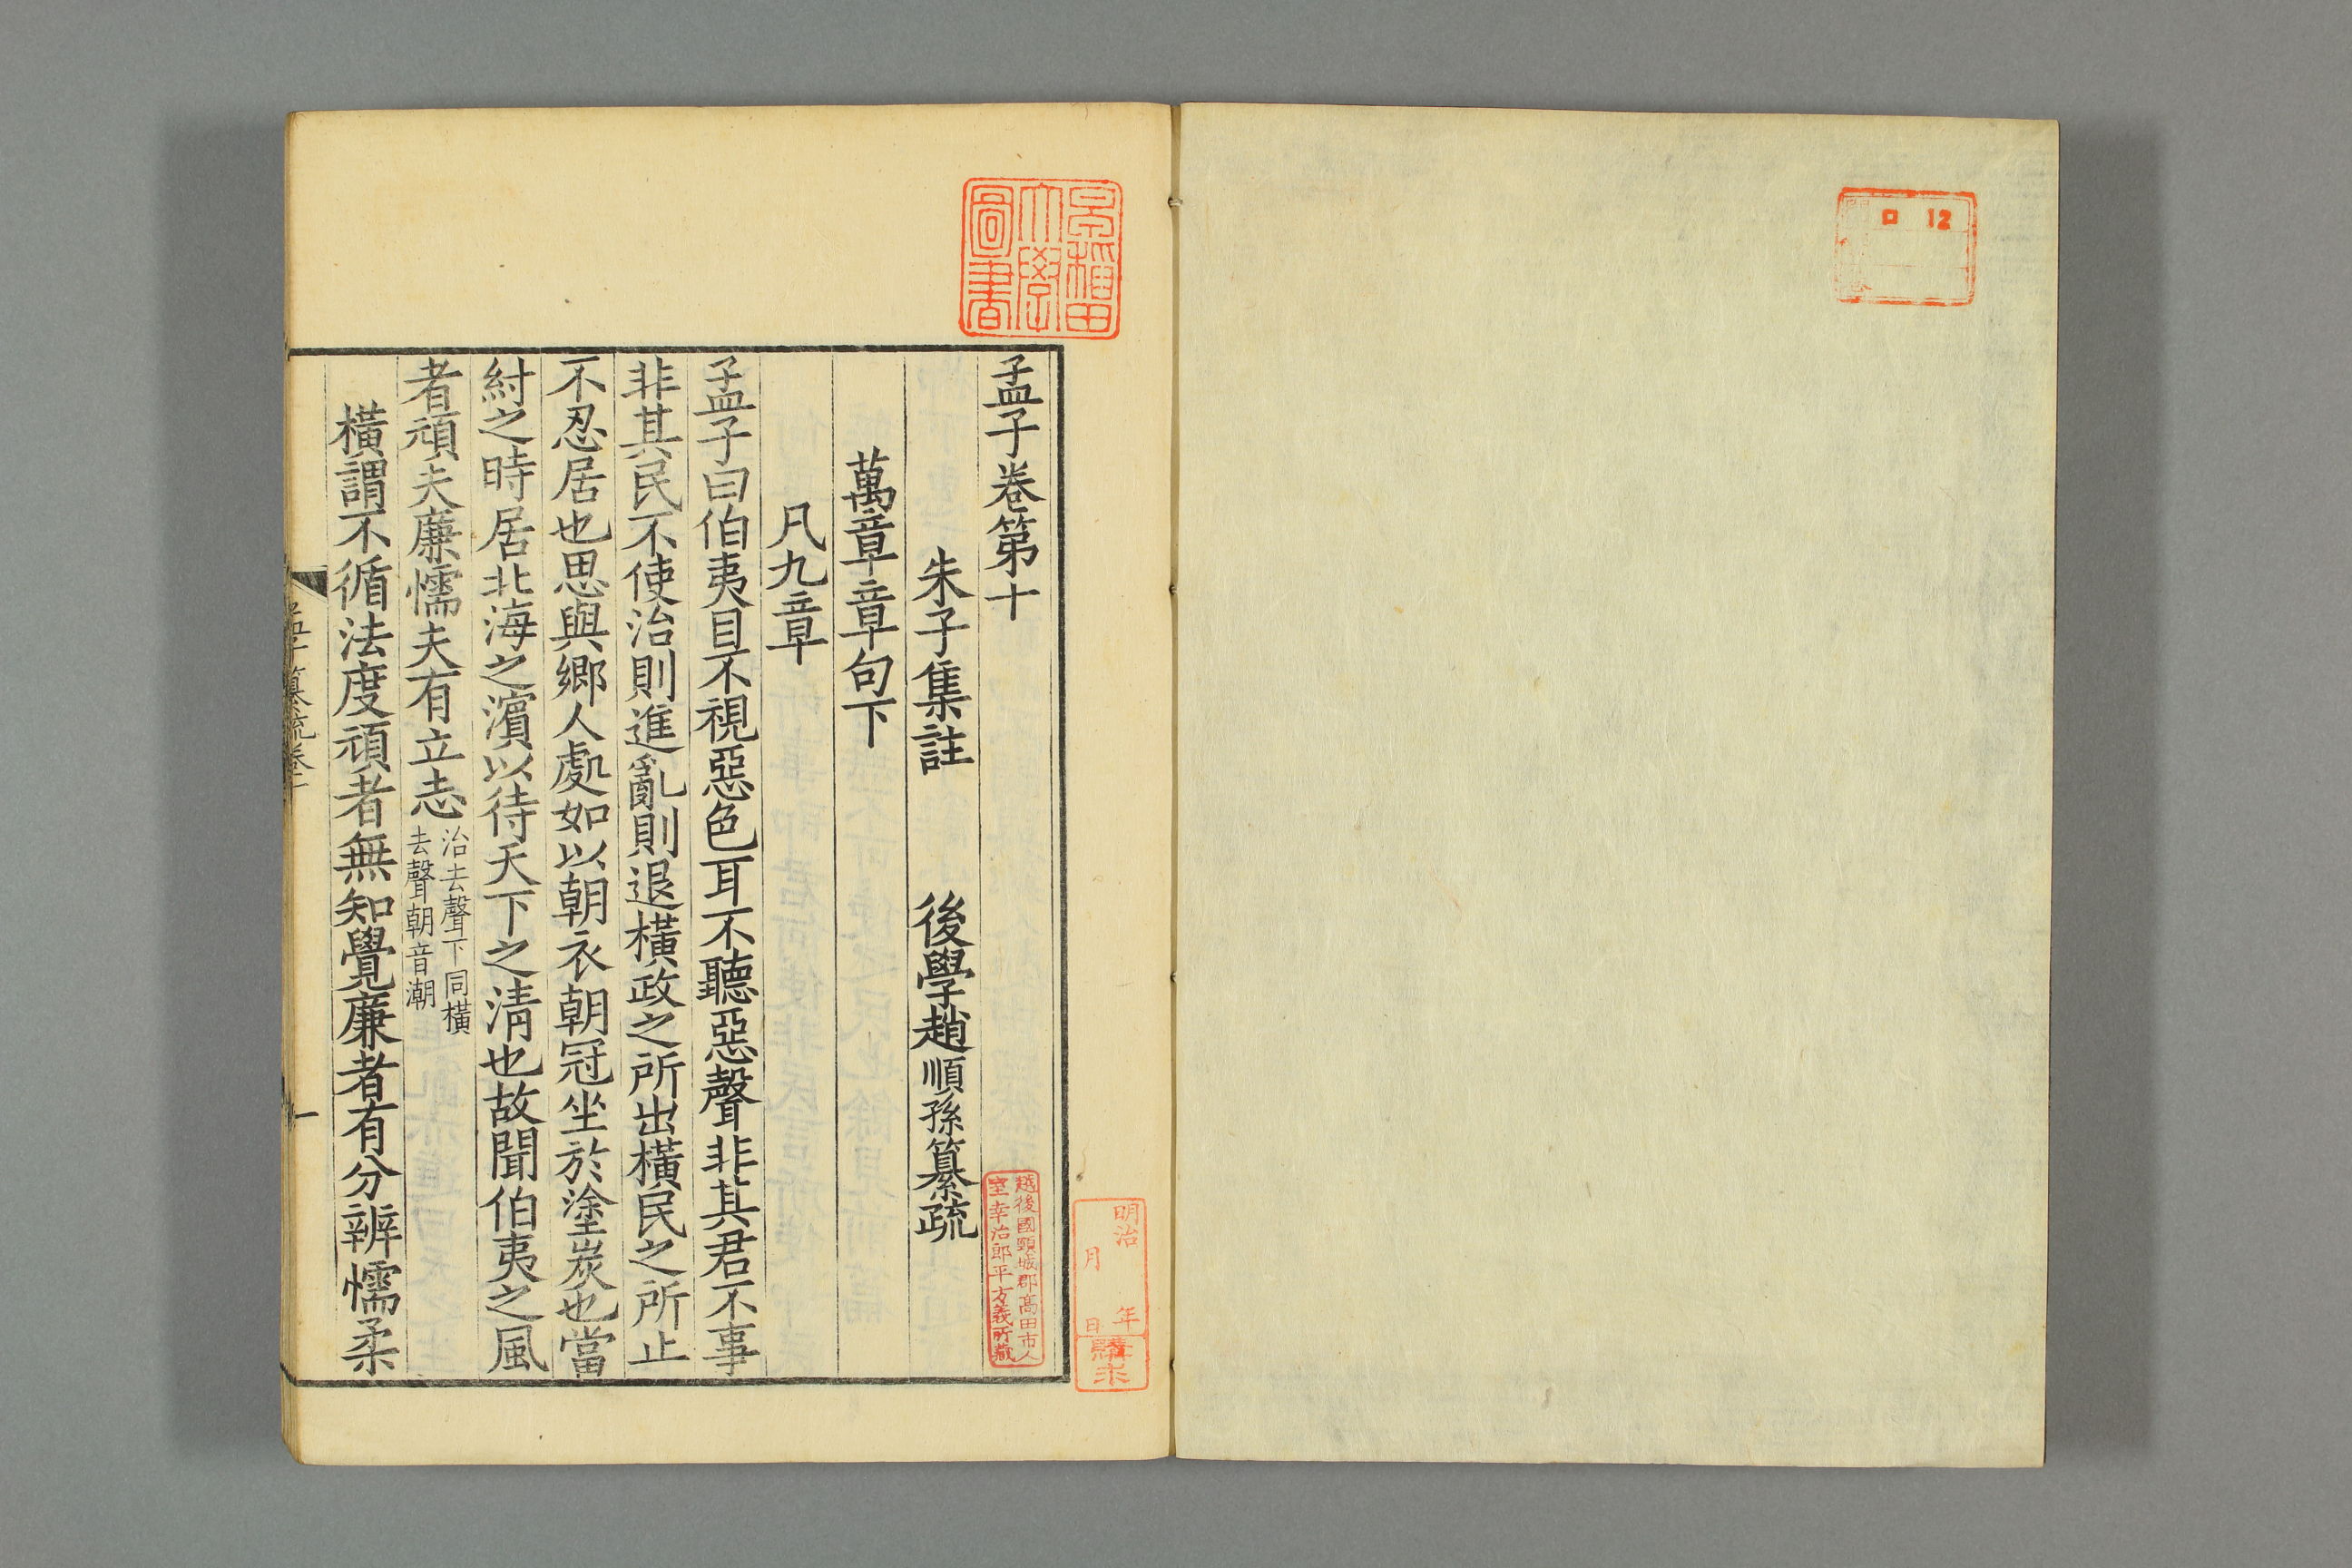 ロ 12
早稲田
大學
圖書
明治 年
月 日
購求
孟子卷第十
朱子集註 後學趙順孫纂疏
越後國頸城郡高田市人
室幸治郎平方義所藏
萬章章句下
凡九章
孟子曰伯夷目不視惡色耳不聽惡聲非其君不事
非其民不使治則進亂則退橫政之所出橫民之所止
不忍居也思與鄉人處如以朝衣朝冠坐於塗炭也當
紂之時居北海之濱以待天下之淸也故聞伯夷之風
者頑夫廉懦夫有立志
治去聲下同橫
去聲朝音潮
橫謂不循法度頑者無知覺廉者有分辨懦柔
孟子纂疏卷十
一